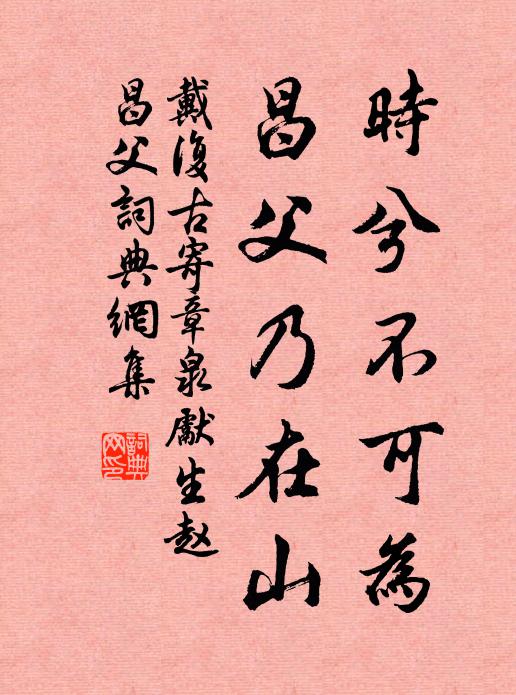 時兮不可為
昌父乃在山
戴復古寄章泉獻生赵
昌父詞典網集
詞典網印